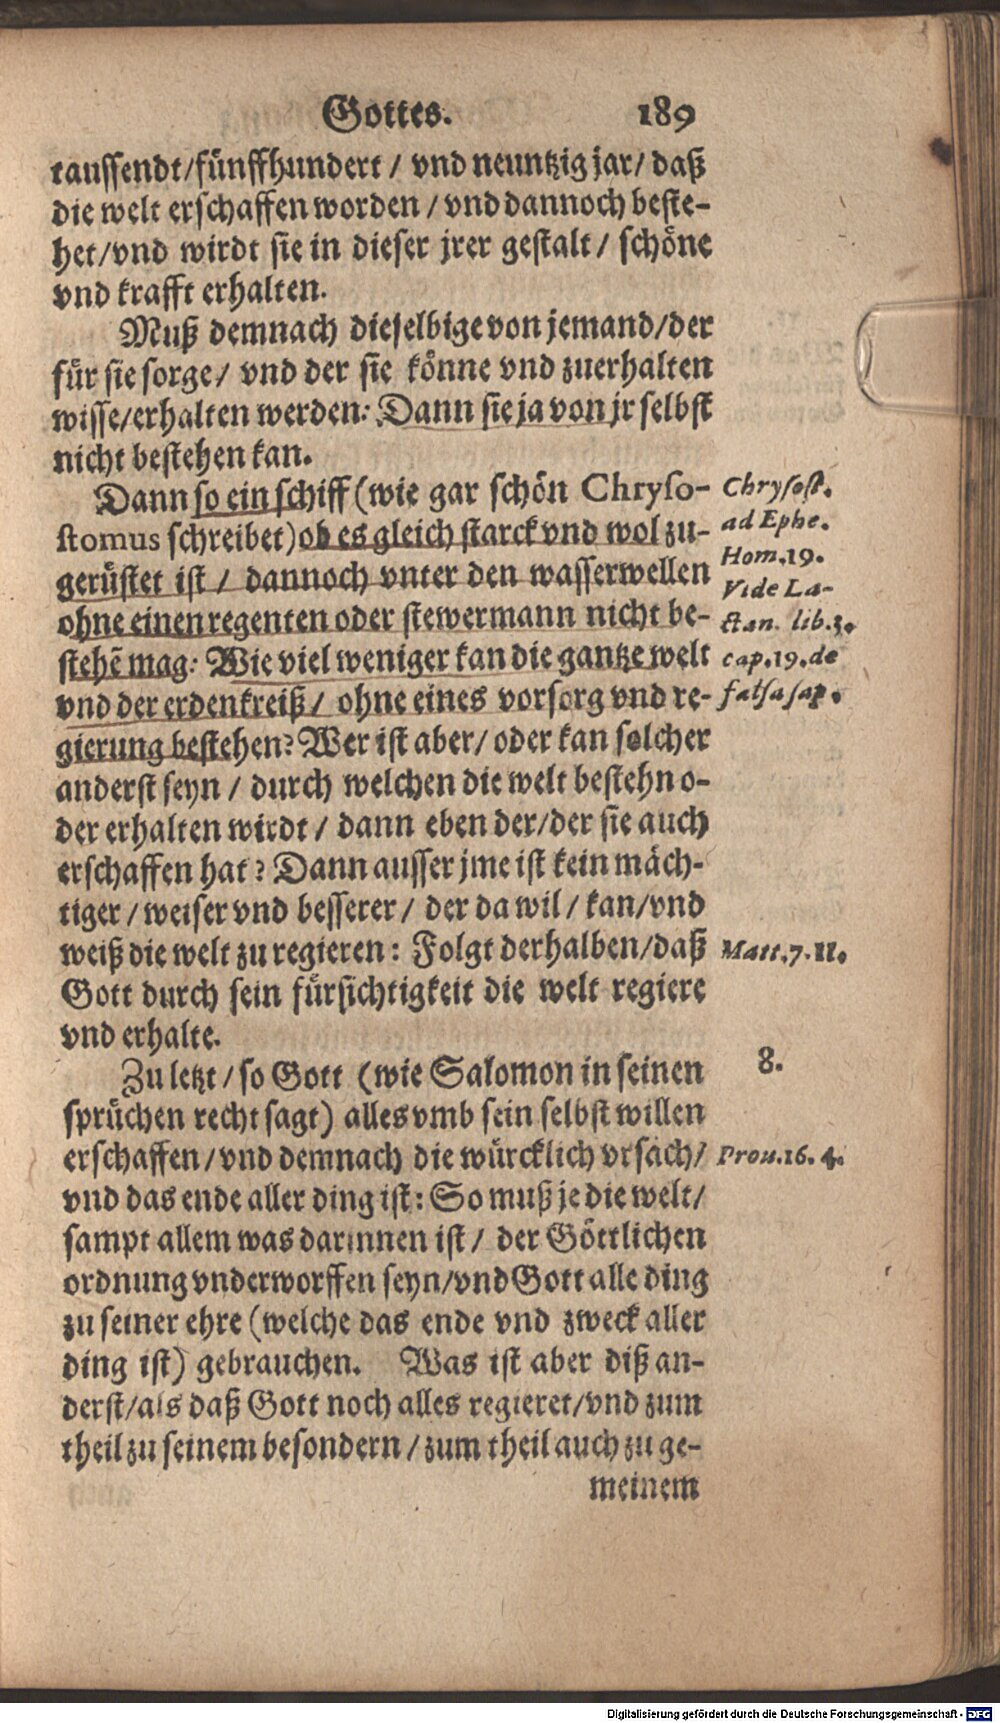 Gottes. 189
taussendt/fünffhundert / vnd neuntzig jar/ daß
die welt erschaffen worden / vnd dannoch beste-
het/vnd wirdt sie in dieser jrer gestalt / schöne
vnd krafft erhalten.
Muß demnach dieselbige von jemand/der
für sie sorge/ vnd der sie könne vnd zuerhalten
wisse/erhalten werden: Dann sie ja von jr selbst
nicht bestehen kan.
Dann so ein schiff (wie gar schön Chryso-
stomus schreibet) ob es gleich starck vnd wol zu-
gerüstet ist / dannoch vnter den wasserwellen
ohne einen regenten oder stewermann nicht be-
stehē mag: Wie viel weniger kan die gantze welt
vnd der erdenkreiß / ohne eines vorsorg vnd re-
gierung bestehen? Wer ist aber/ oder kan solcher
anderst seyn / durch welchen die welt bestehn o-
der erhalten wirdt / dann eben der/der sie auch
erschaffen hat? Dann ausser jme ist kein mäch-
tiger / weiser vnd besserer / der da wil / kan/vnd
weiß die welt zu regieren: Folgt derhalben/daß
Gott durch sein fürsichtigkeit die welt regiere
vnd erhalte.
Zu letzt / so Gott (wie Salomon in seinen
sprüchen recht sagt) alles vmb sein selbst willen
erschaffen/vnd demnach die würcklich vrsach/
vnd das ende aller ding ist: So muß je die welt/
sampt allem was darinnen ist / der Göttlichen
ordnung vnderworffen seyn/vnd Gott alle ding
zu seiner ehre (welche das ende vnd zweck aller
ding ist) gebrauchen. Was ist aber diß an-
derst/als daß Gott noch alles regieret/vnd zum
theil zu seinem besondern / zum theil auch zu ge-
meinem
Chrysost.
ad Ephe.
Hom.19.
Vide La-
ctan. lib.3.
cap.19.de
falsa sap.
Matt.7.11.
8.
Prou.16.4.
Digitalisierung gefördert durch die Deutsche Forschungsgemeinschaft - DFG